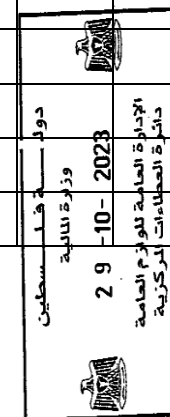 دولـــــة فلـــــسطين
وزارة المالية
29 -10- 2023
الإدارة العامة للوازم العامة
دائرة العطاءات المركزية